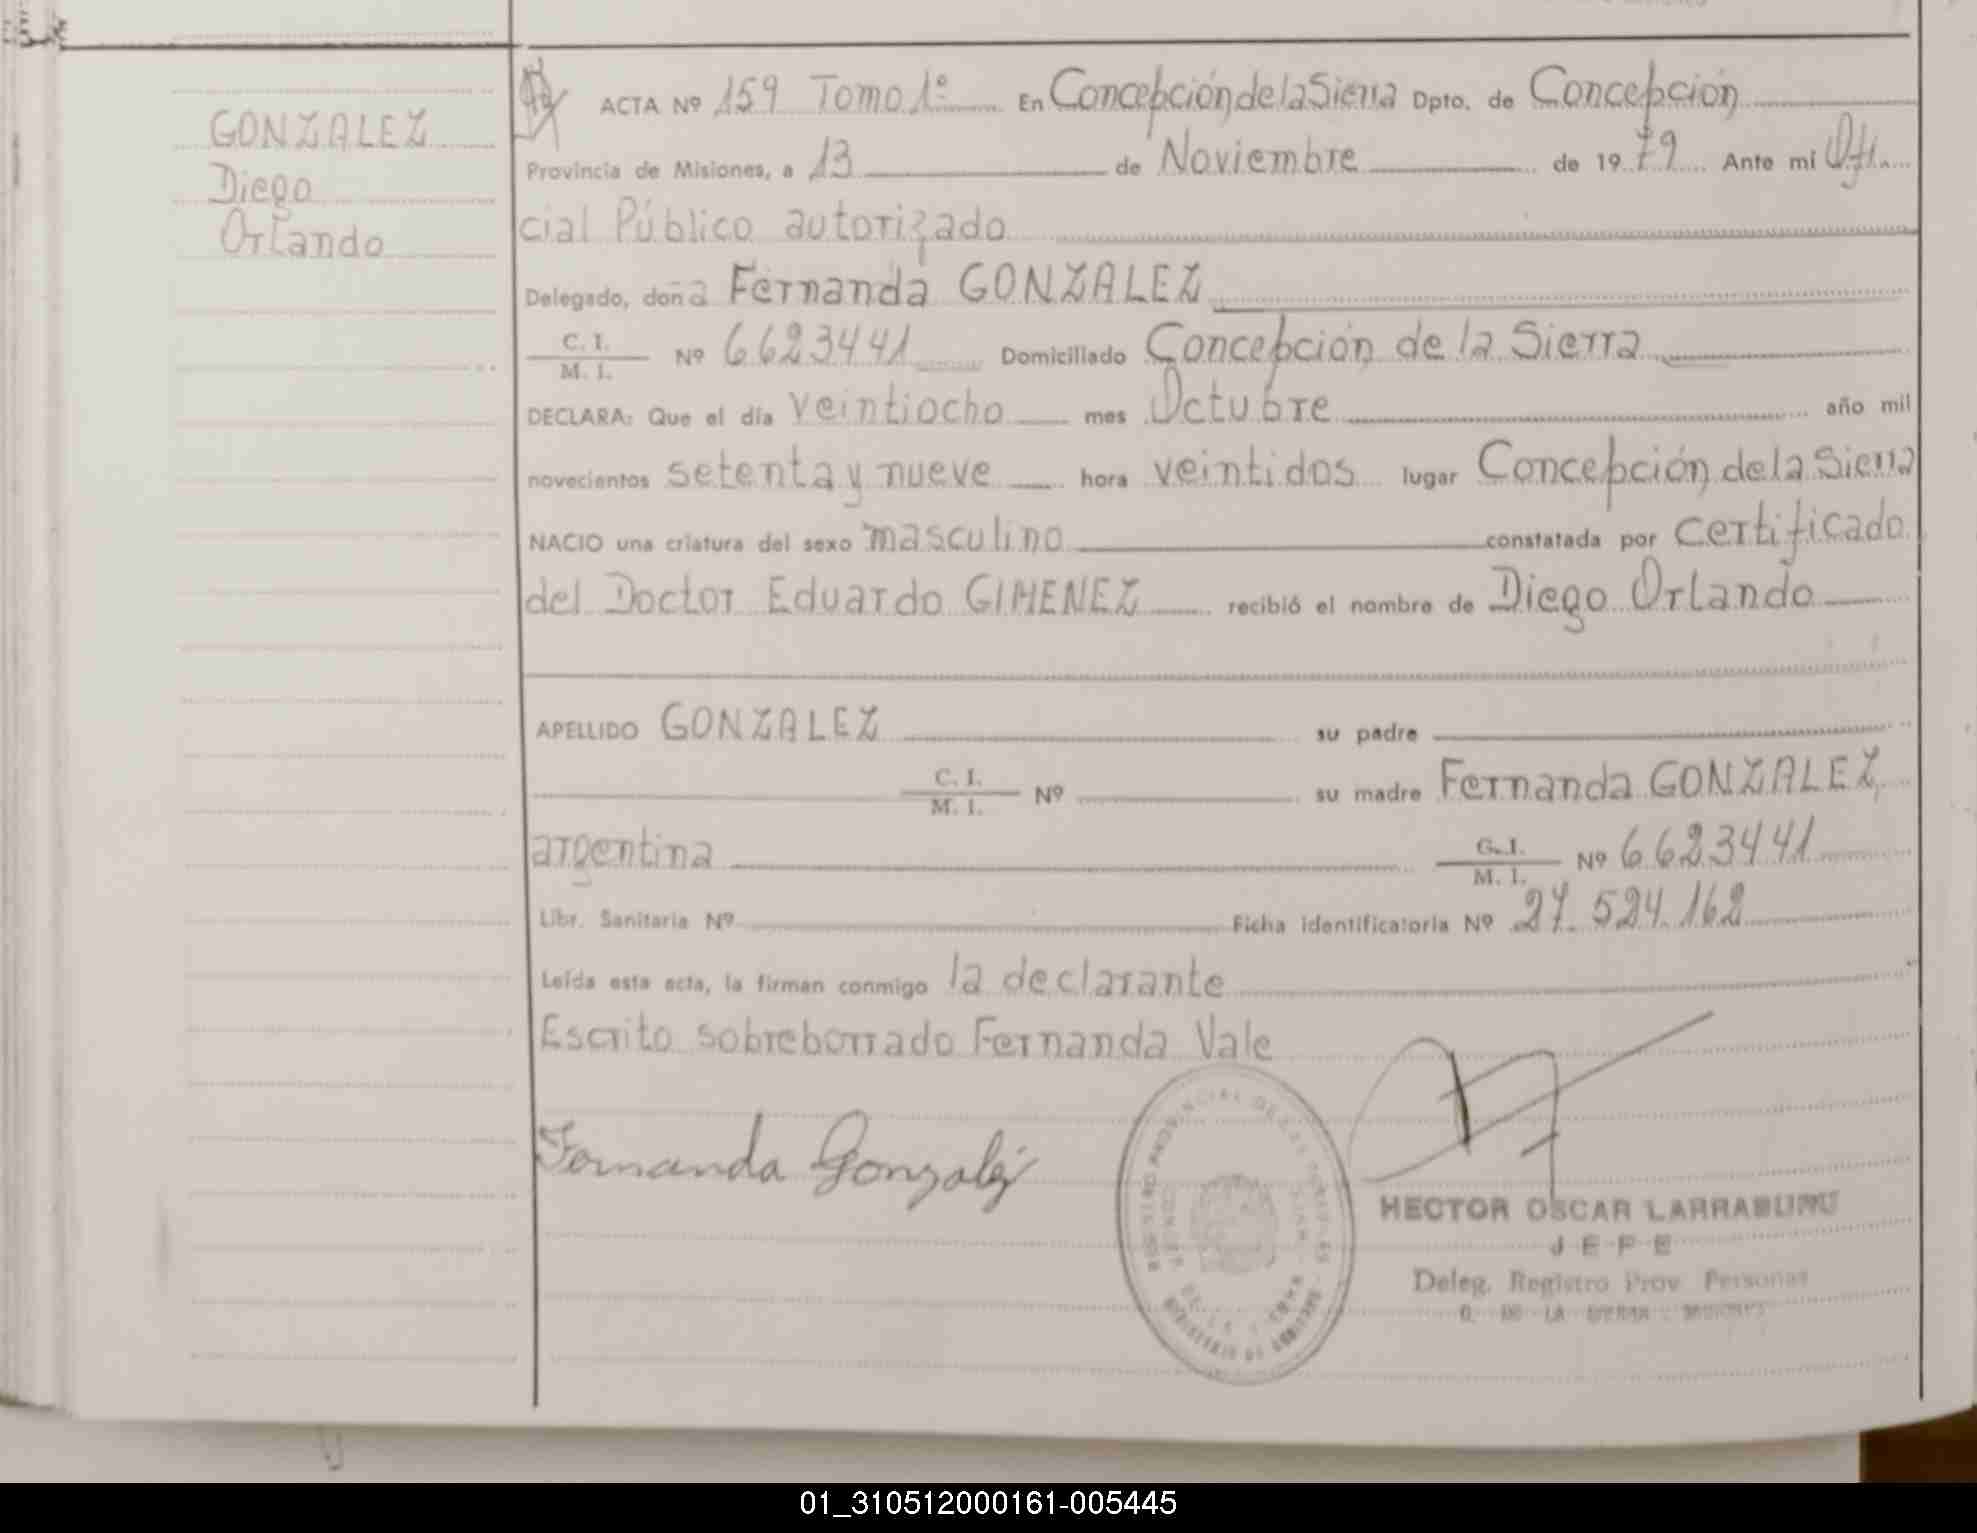 GONZALEZ
Diego
Orlando
ACTA Nº 159 Tomo 1º En Concepción de la Sierra Dpto. de Concepción
Provincia de Misiones, a 13 de Noviembre de 1979 Ante mi Ofi.
cial Público autorizado
Delegado, doña Fernanda GONZALEZ
C. I.
M. I. Nº 6623441 Domiciliado Concepción de la Sierra
DECLARA: Que el día veintiocho mes Octubre año mil
novecientos setenta y nueve hora veintidos lugar Concepción de la Sierra
NACIO una criatura del sexo masculino constatada por certificado
del Doctor Eduardo GIMENEZ recibió el nombre de Diego Orlando
APELLIDO GONZALEZ su padre
C. I.
M. I. Nº su madre Fernanda GONZALEZ,
argentina C. I.
M. I. Nº 6623441
Libr. Sanitaria Nº Ficha identificatoria Nº 27.524.162
Leída esta acta, la firman conmigo la declarante
Escrito sobreborrado Fernanda Vale
Fernanda Gonzalez
REGISTRO PROVINCIAL DE LAS PERSONAS
HECTOR OSCAR LARRABURU
JEFE
Deleg. Registro Prov. Personas
C. DE LA SIERRA - MISIONES
01_310512000161-005445